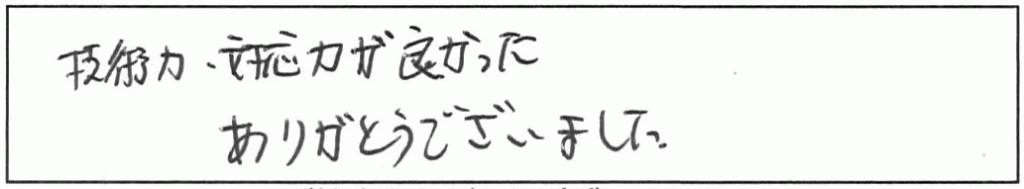 技術力、対応力が良かった
ありがとうございました。